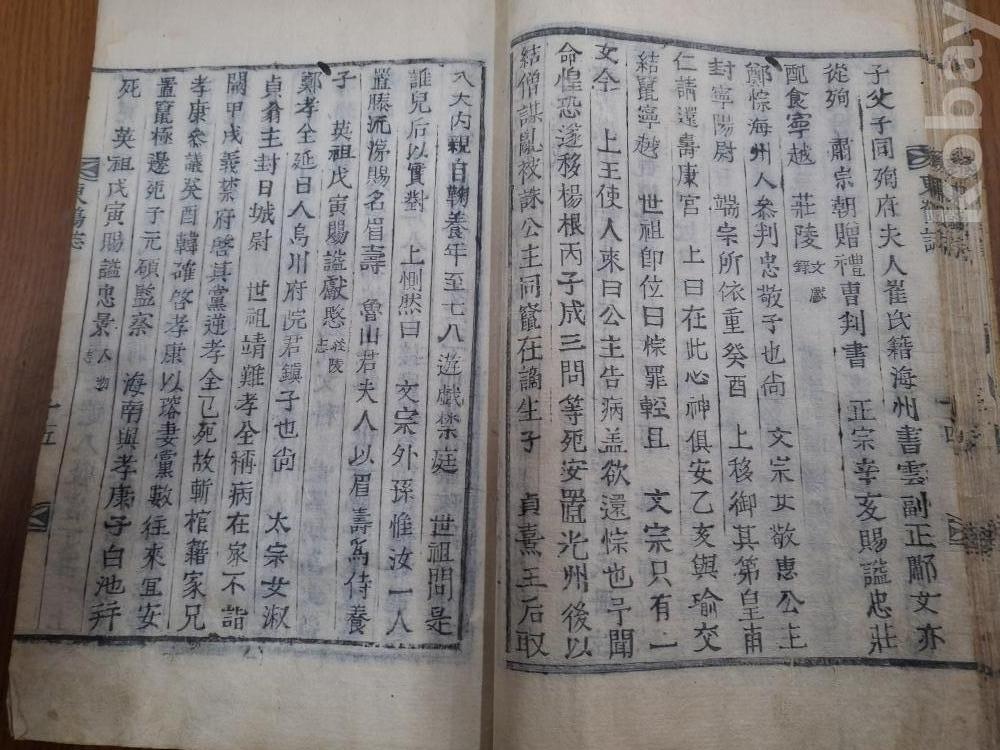 子父子同殉府夫人崔氏籍海州書雲副正女亦
從殉 肅宗朝贈禮曹判書 正宗辛亥賜謚忠莊
配食寧越 莊陵 文獻錄
鄭悰海州人參判忠敬子也尙 文宗女敬惠公主
封寧陽尉 端宗所依重癸酉 上移御其第皇甫
仁請還壽康宮 上曰在此心神俱安乙亥與瑜交
結竄寧越 世祖卽位曰悰罪輕且 文宗只有一
女今 上王使人來曰公主告病盖欲還悰也予聞
命惶恐遂移楊根丙子成三問等死安置光州後以
結僧謀亂被誅公主同竄在謫生子 貞熹王后取
入大內親自鞠養年至七八遊戱禁庭 世祖問是
誰兒后以實對 上惻然曰 文宗外孫惟汝一人
置膝流涕賜名眉壽 魯山君夫人以眉壽爲侍養
子 英祖戊寅賜謚獻愍 莊陵志
鄭孝全延日人烏川府院君鎭子也尙 太宗女淑
貞翁主封日城尉 世祖靖難孝全稱病在家不詣
闕甲戌義禁府啓其黨逆孝全已死故斬棺籍家兄
孝康參議癸酉韓確啓孝康以瑢妻黨數往來宜安
置竄極邊死子元碩監察 海南與孝康子白池幷
死 英祖戊寅賜謚忠景 人物志
kobay